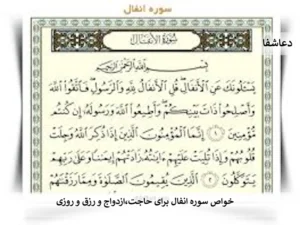 سوره انفال
دعاشفا
سُورَةُ الأَنفَالِ
بِسْمِ اللَّهِ الرَّحْمَٰنِ الرَّحِيمِ
يَسْـَٔلُونَكَ عَنِ الْأَنفَالِ قُلِ الْأَنفَالُ لِلَّهِ وَالرَّسُولِ فَاتَّقُوا اللَّهَ
وَأَصْلِحُوا ذَاتَ بَيْنِكُمْ وَأَطِيعُوا اللَّهَ وَرَسُولَهُ إِن كُنتُم
مُّؤْمِنِينَ ١ إِنَّمَا الْمُؤْمِنُونَ الَّذِينَ إِذَا ذُكِرَ اللَّهُ وَجِلَتْ
قُلُوبُهُمْ وَإِذَا تُلِيَتْ عَلَيْهِمْ ءَايَٰتُهُ زَادَتْهُمْ إِيمَٰنًا وَعَلَىٰ رَبِّهِمْ
يَتَوَكَّلُونَ ٢ الَّذِينَ يُقِيمُونَ الصَّلَوٰةَ وَمِمَّا رَزَقْنَٰهُمْ
خواص سوره انفال برای حاجت،ازدواج و رزق و روزی